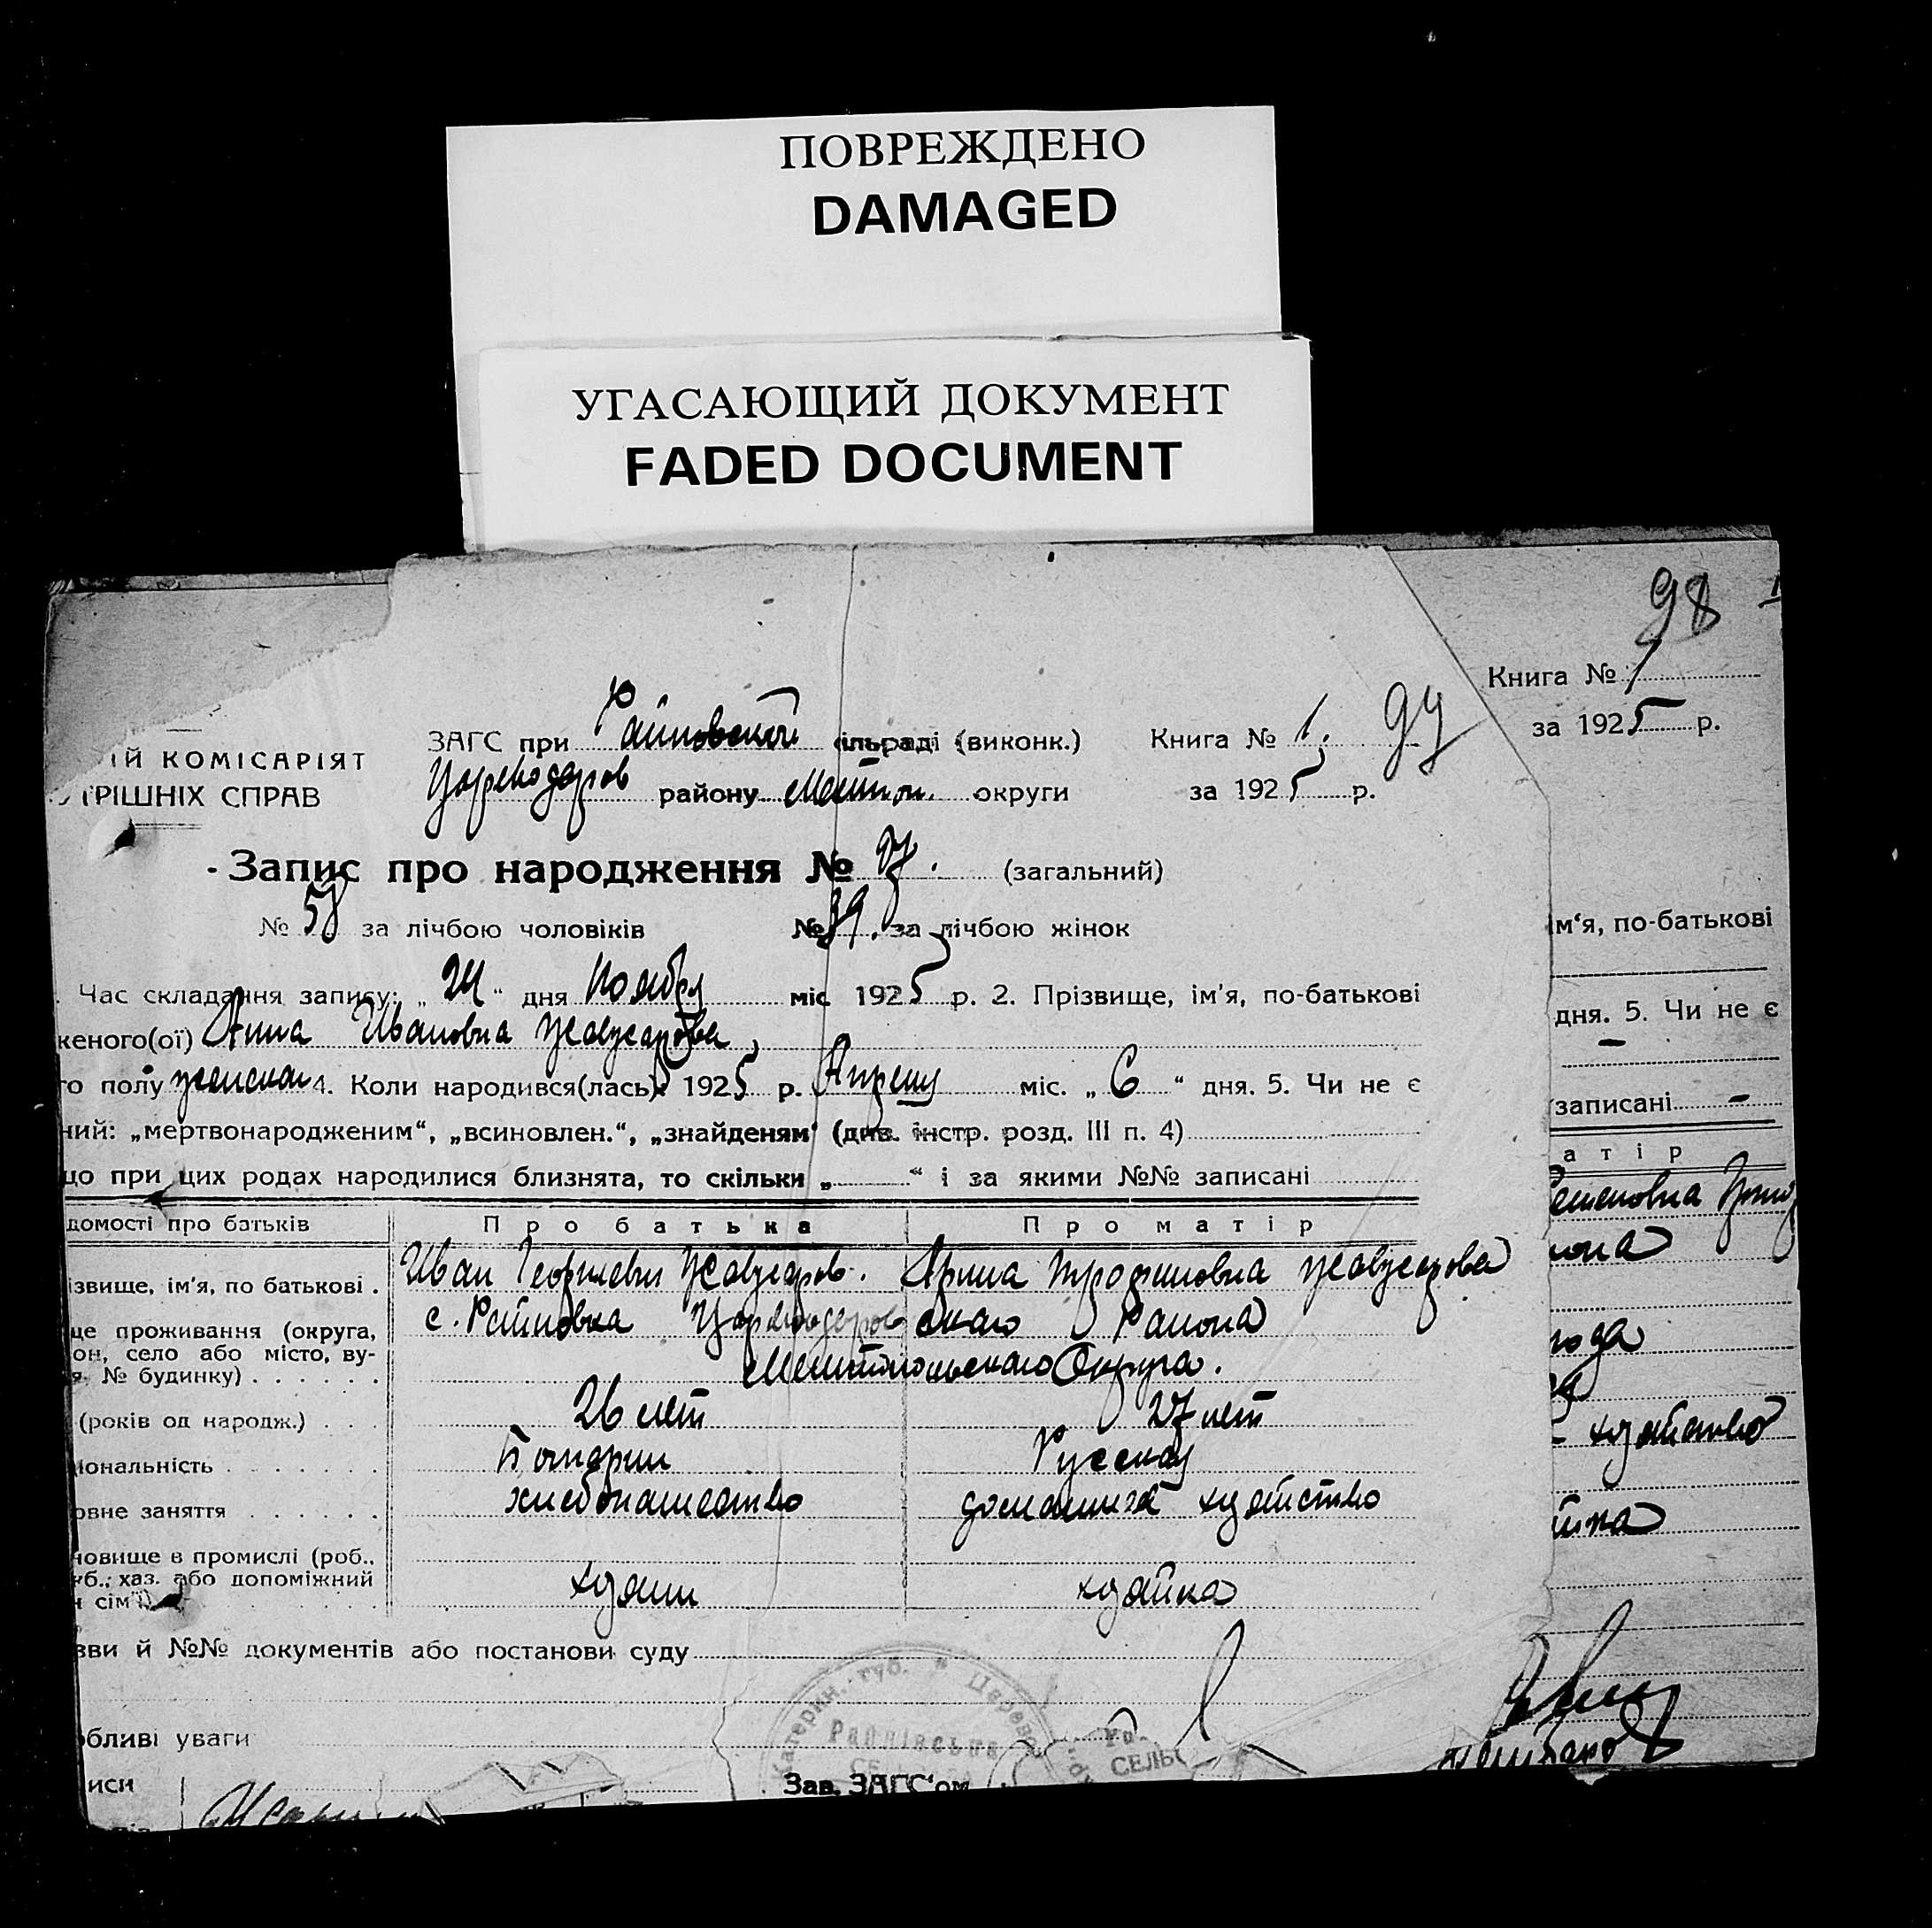 ПОВРЕЖДЕНО
DAMAGED
УГАСАЮЩИЙ ДОКУМЕНТ
FADED DOCUMENT
98
Книга № 1
за 1925 р.
97
ІЙ КОМІСАРІЯТ
ТРІШНІХ СПРАВ
ЗАГС при Райновской сільраді (виконк.) Книга № 1.
району округи за 1925 р.
Запис про народження № 97. (загальний)
№ 58 за лічбою чоловіків № 39. за лічбою жінок
Час складання запису: „24“ дня Ноября міс 1925 р. 2. Прізвище, ім'я, по-батькові
женого(ої) Анна Ивановна Жавжарова
го полу женская 4. Коли народився(лась) 1925 р. Апрель міс. „6“ дня. 5. Чи не є
ний: „мертвонародженим“, „всиновлен.“, „знайденям“ (див. інстр. розд. III п. 4)
що при цих родах народилися близнята, то скільки „ “ і за якими №№ записані
домості про батьків Про батька Про матір
ізвище, ім'я, по батькові . Иван Георгиевич Жавжаров. Арина Трофимовна Жавжарова
це проживання (округа, с. Райновка скаго Района
он, село або місто, ву-
я № будинку) Мелитопольскаго Округа.
(років од народж.) 26 лет 27 лет
іональність Болгарин Русская
овне заняття хлебопашество домашнее хозяйство
новище в промислі (роб.,
уб., хаз. або допоміжний
н сім'ї) хозяин хозяйка
зви й №№ документів або постанови суду
бливі уваги
иси
Зав. ЗАГС'ом
Катерин. губ.
Райнівська
СЕЛЬ
ім'я, по-батькові
дня. 5. Чи не є
записані –
атір
Семеновна
хозяйство